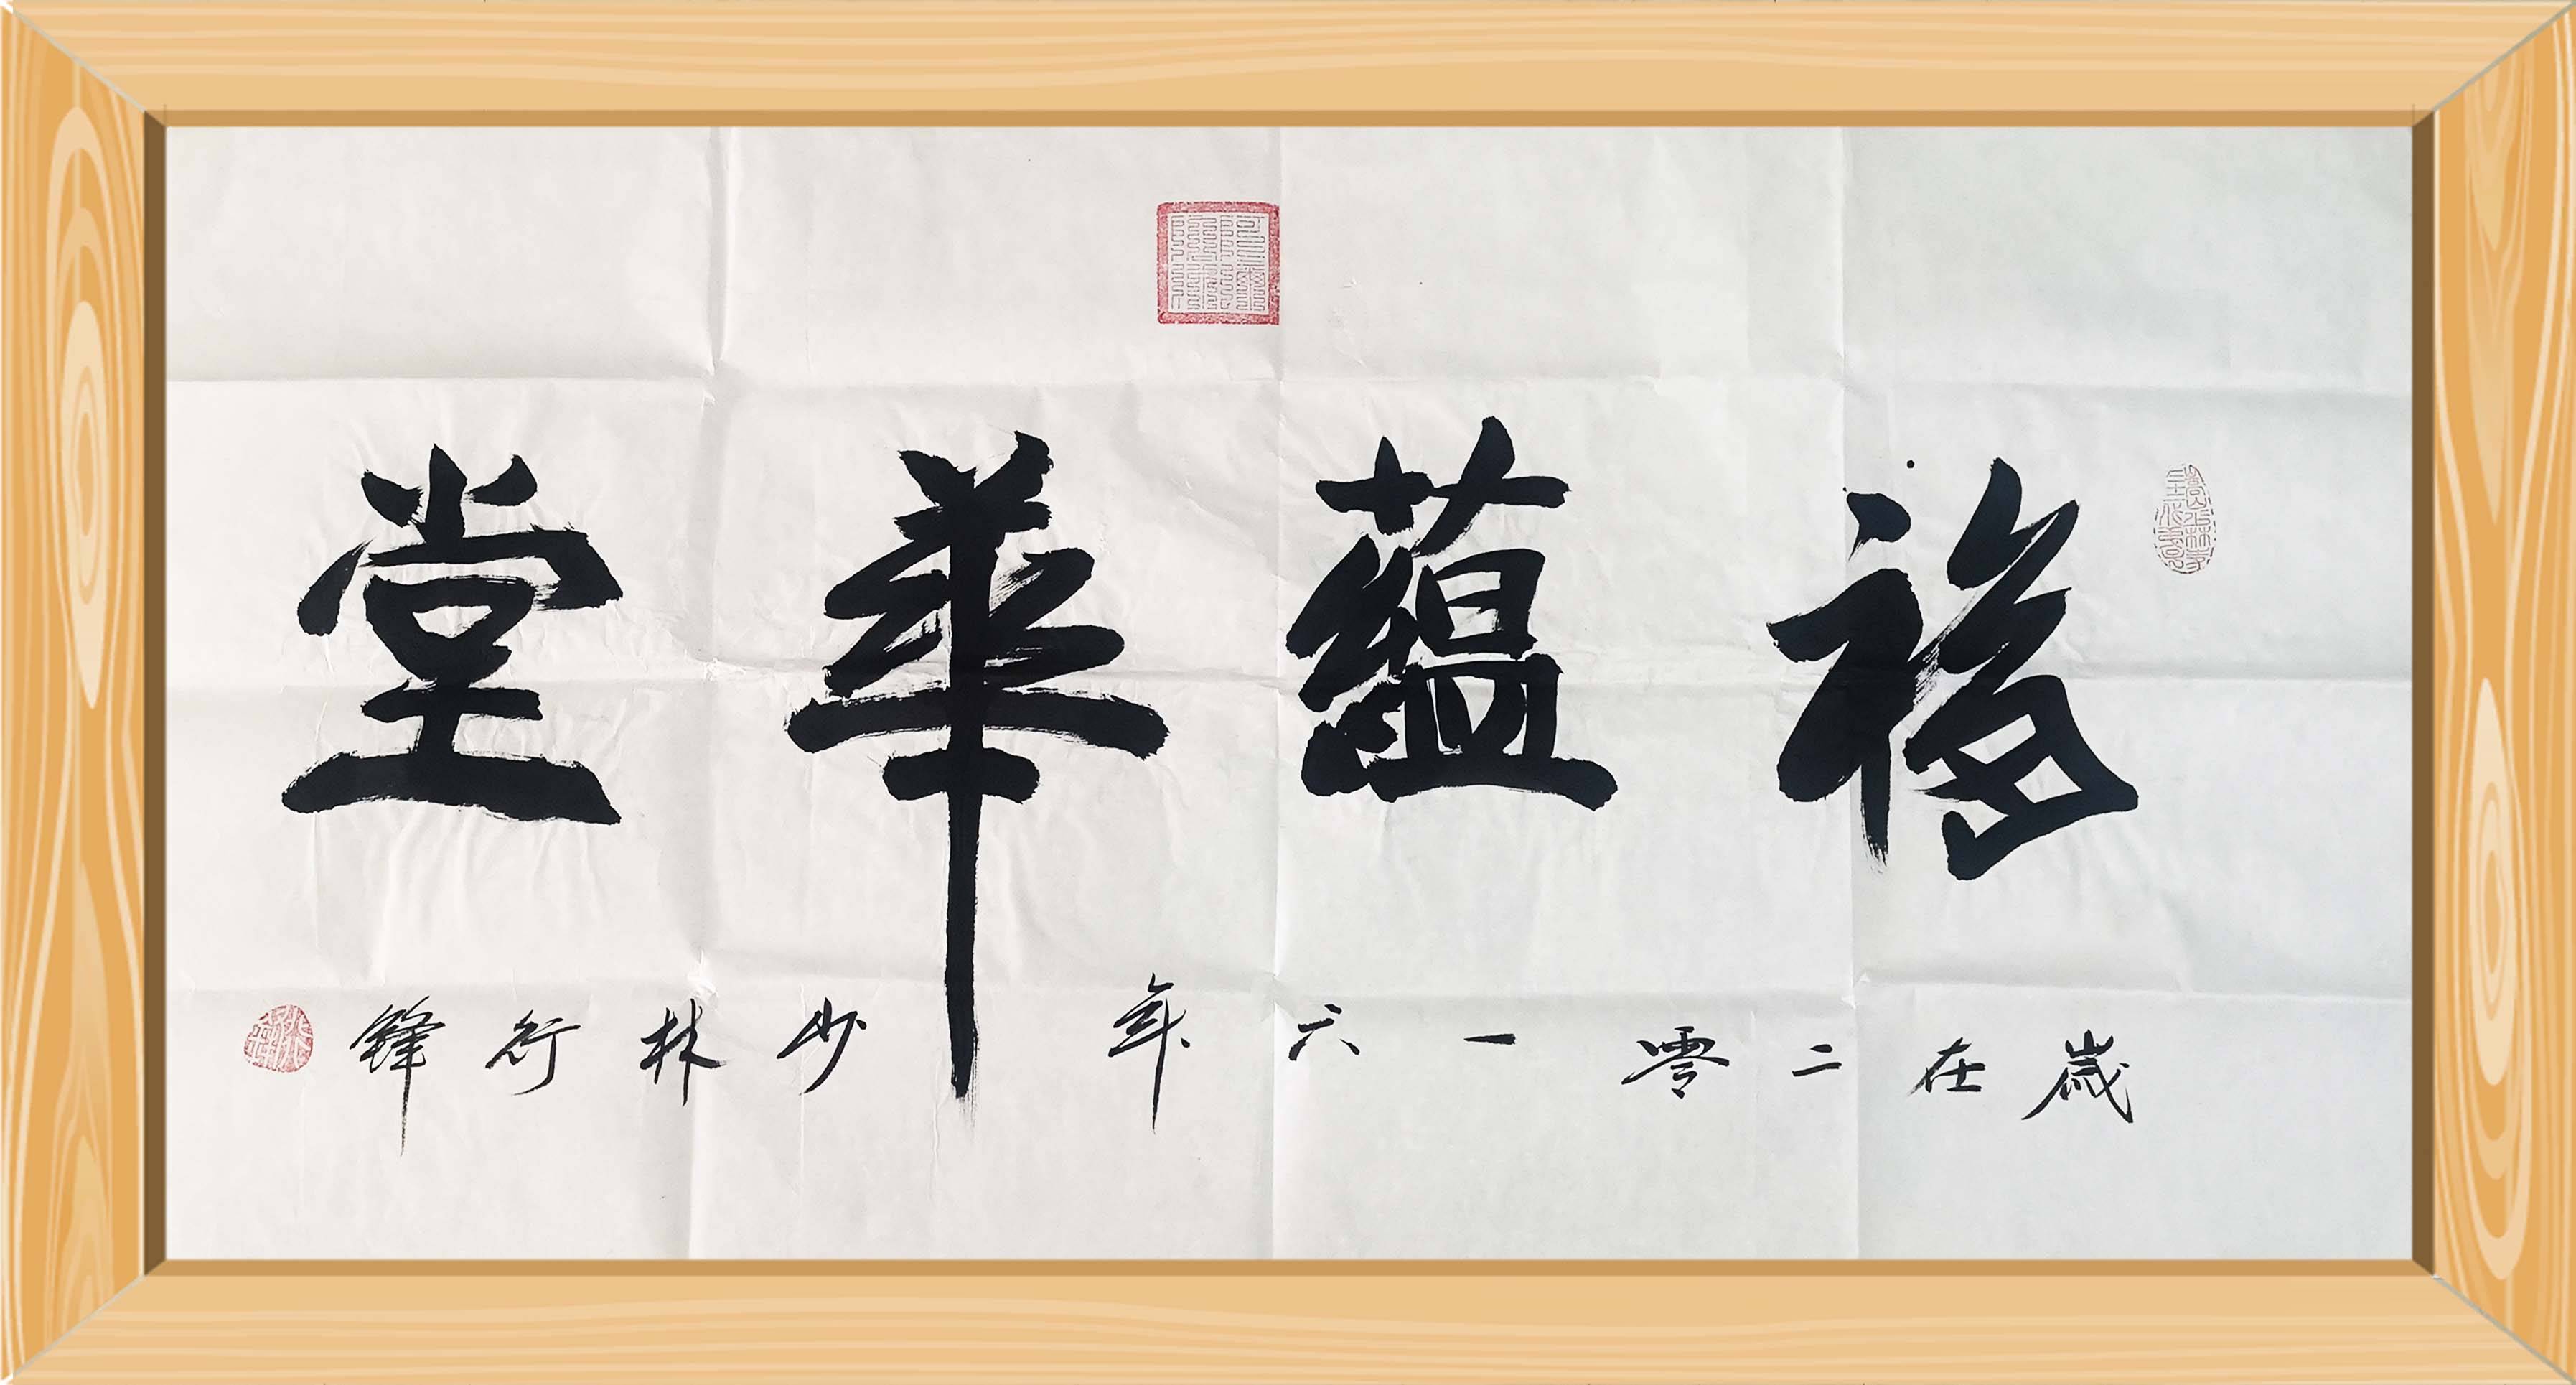 福蘊華堂
歲在二零一六年 少林行鋒